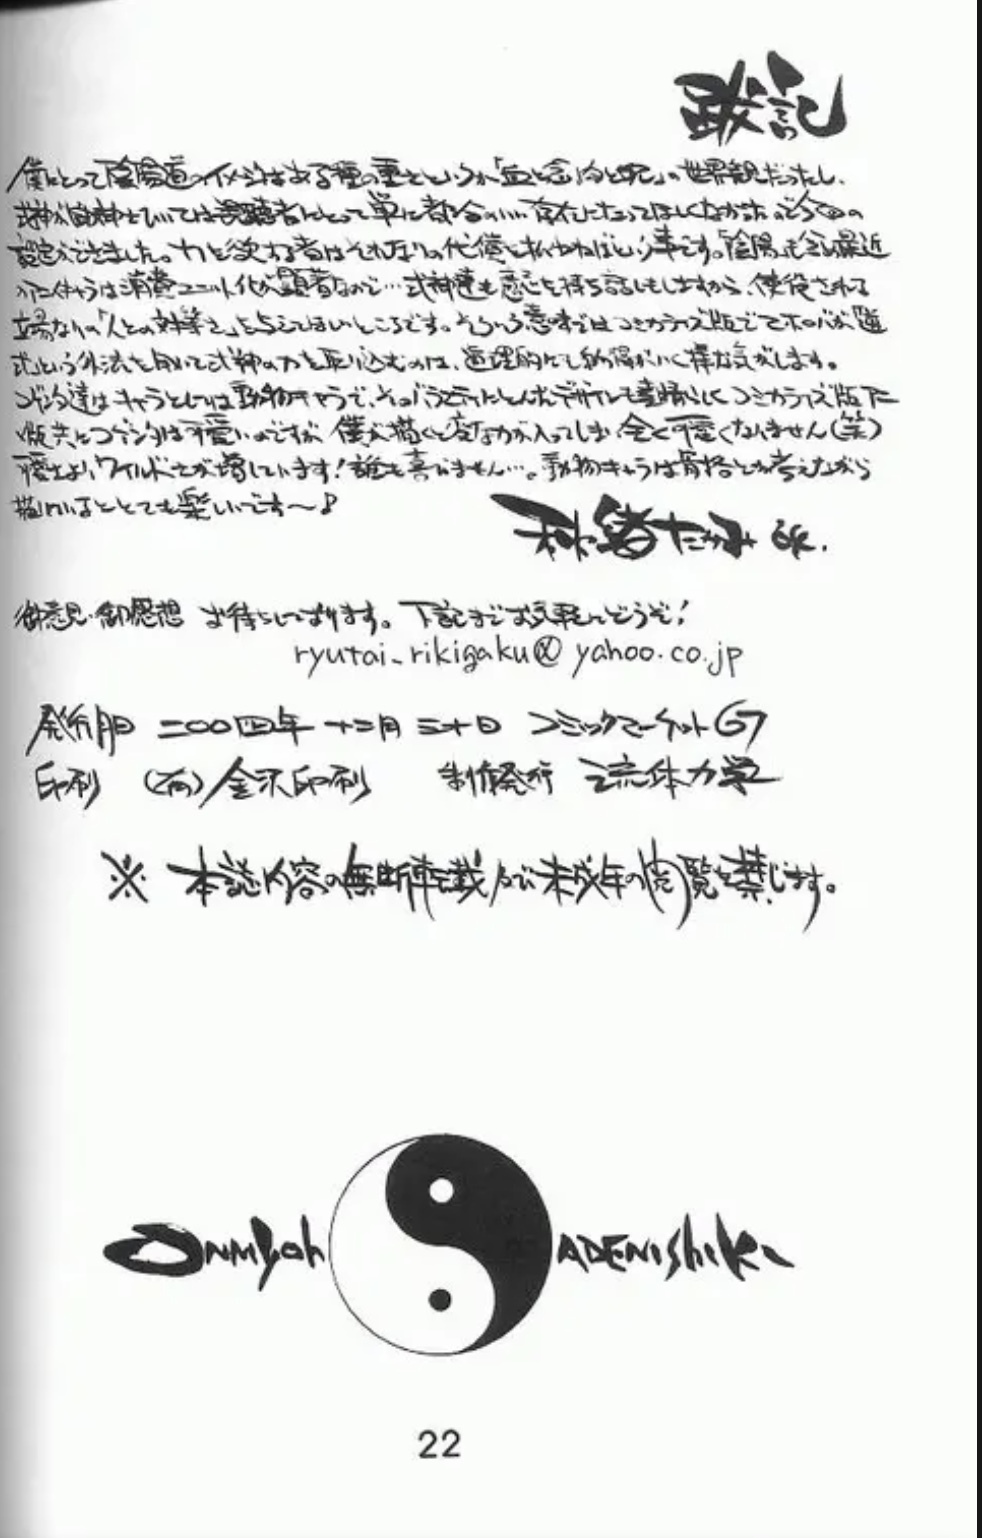 跋記
僕にとって陰陽道のイメージはある種の重さというか「血と念、肉と呪」の世界観だったし、
式神が 視聴者にとって単に都合のいい存在になってほしくなかったのでこの
設定ができました。力を欲する者はそれなりの代償を払わねばという事です。「陰陽」も含め最近
のアニメキャラは消費ユニット化が顕著なので…式神達も意志を持ち話もしますから、使役される
立場なりの「人との対等さ」を与えてほしいところです。そういう意味ではコミカライズ版でマホロバが
式という外法を用いて式神の力を取り込むのは、道理的にも納得がいく様な気がします。
コゲンタ達はキャラとしては動物キャラで、そのバラエティにとんだデザインも素晴らしくコミカライズ版TV
版共にコゲンタは可愛いのですが、僕が描くと変な力が入ってしまい全く可愛くなりません(笑)
可愛さよりワイルドさが増しています!誰も喜びません…。動物キャラは骨格とか考えながら
描いているととても楽しいです〜♪
秋緒たかみ
御意見・御感想 お待ちしております。下記までお気軽にどうぞ!
ryutai_rikigaku@yahoo.co.jp
発行日 二〇〇四年 十二月 三十日 コミックマーケット67
印刷 (有)金沢印刷 制作発行 流体力学
※ 本誌内容の無断転載及び未成年の閲覧を禁じます。
Onmyoh ADENishiki
22